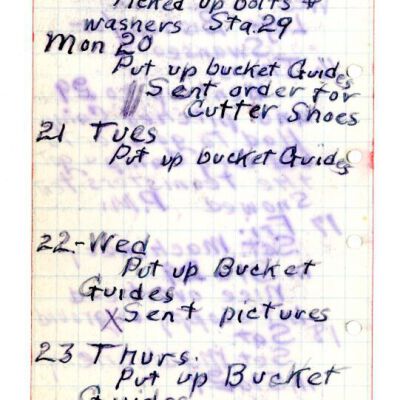 Picked up bolts &
washers Sta. 29
Mon 20
Put up bucket Guides
Sent order for
Cutter Shoes
21 Tues
Put up bucket Guides
22-Wed
Put up Bucket
Guides
X Sent pictures
23 Thurs.
Put up Bucket
Guides